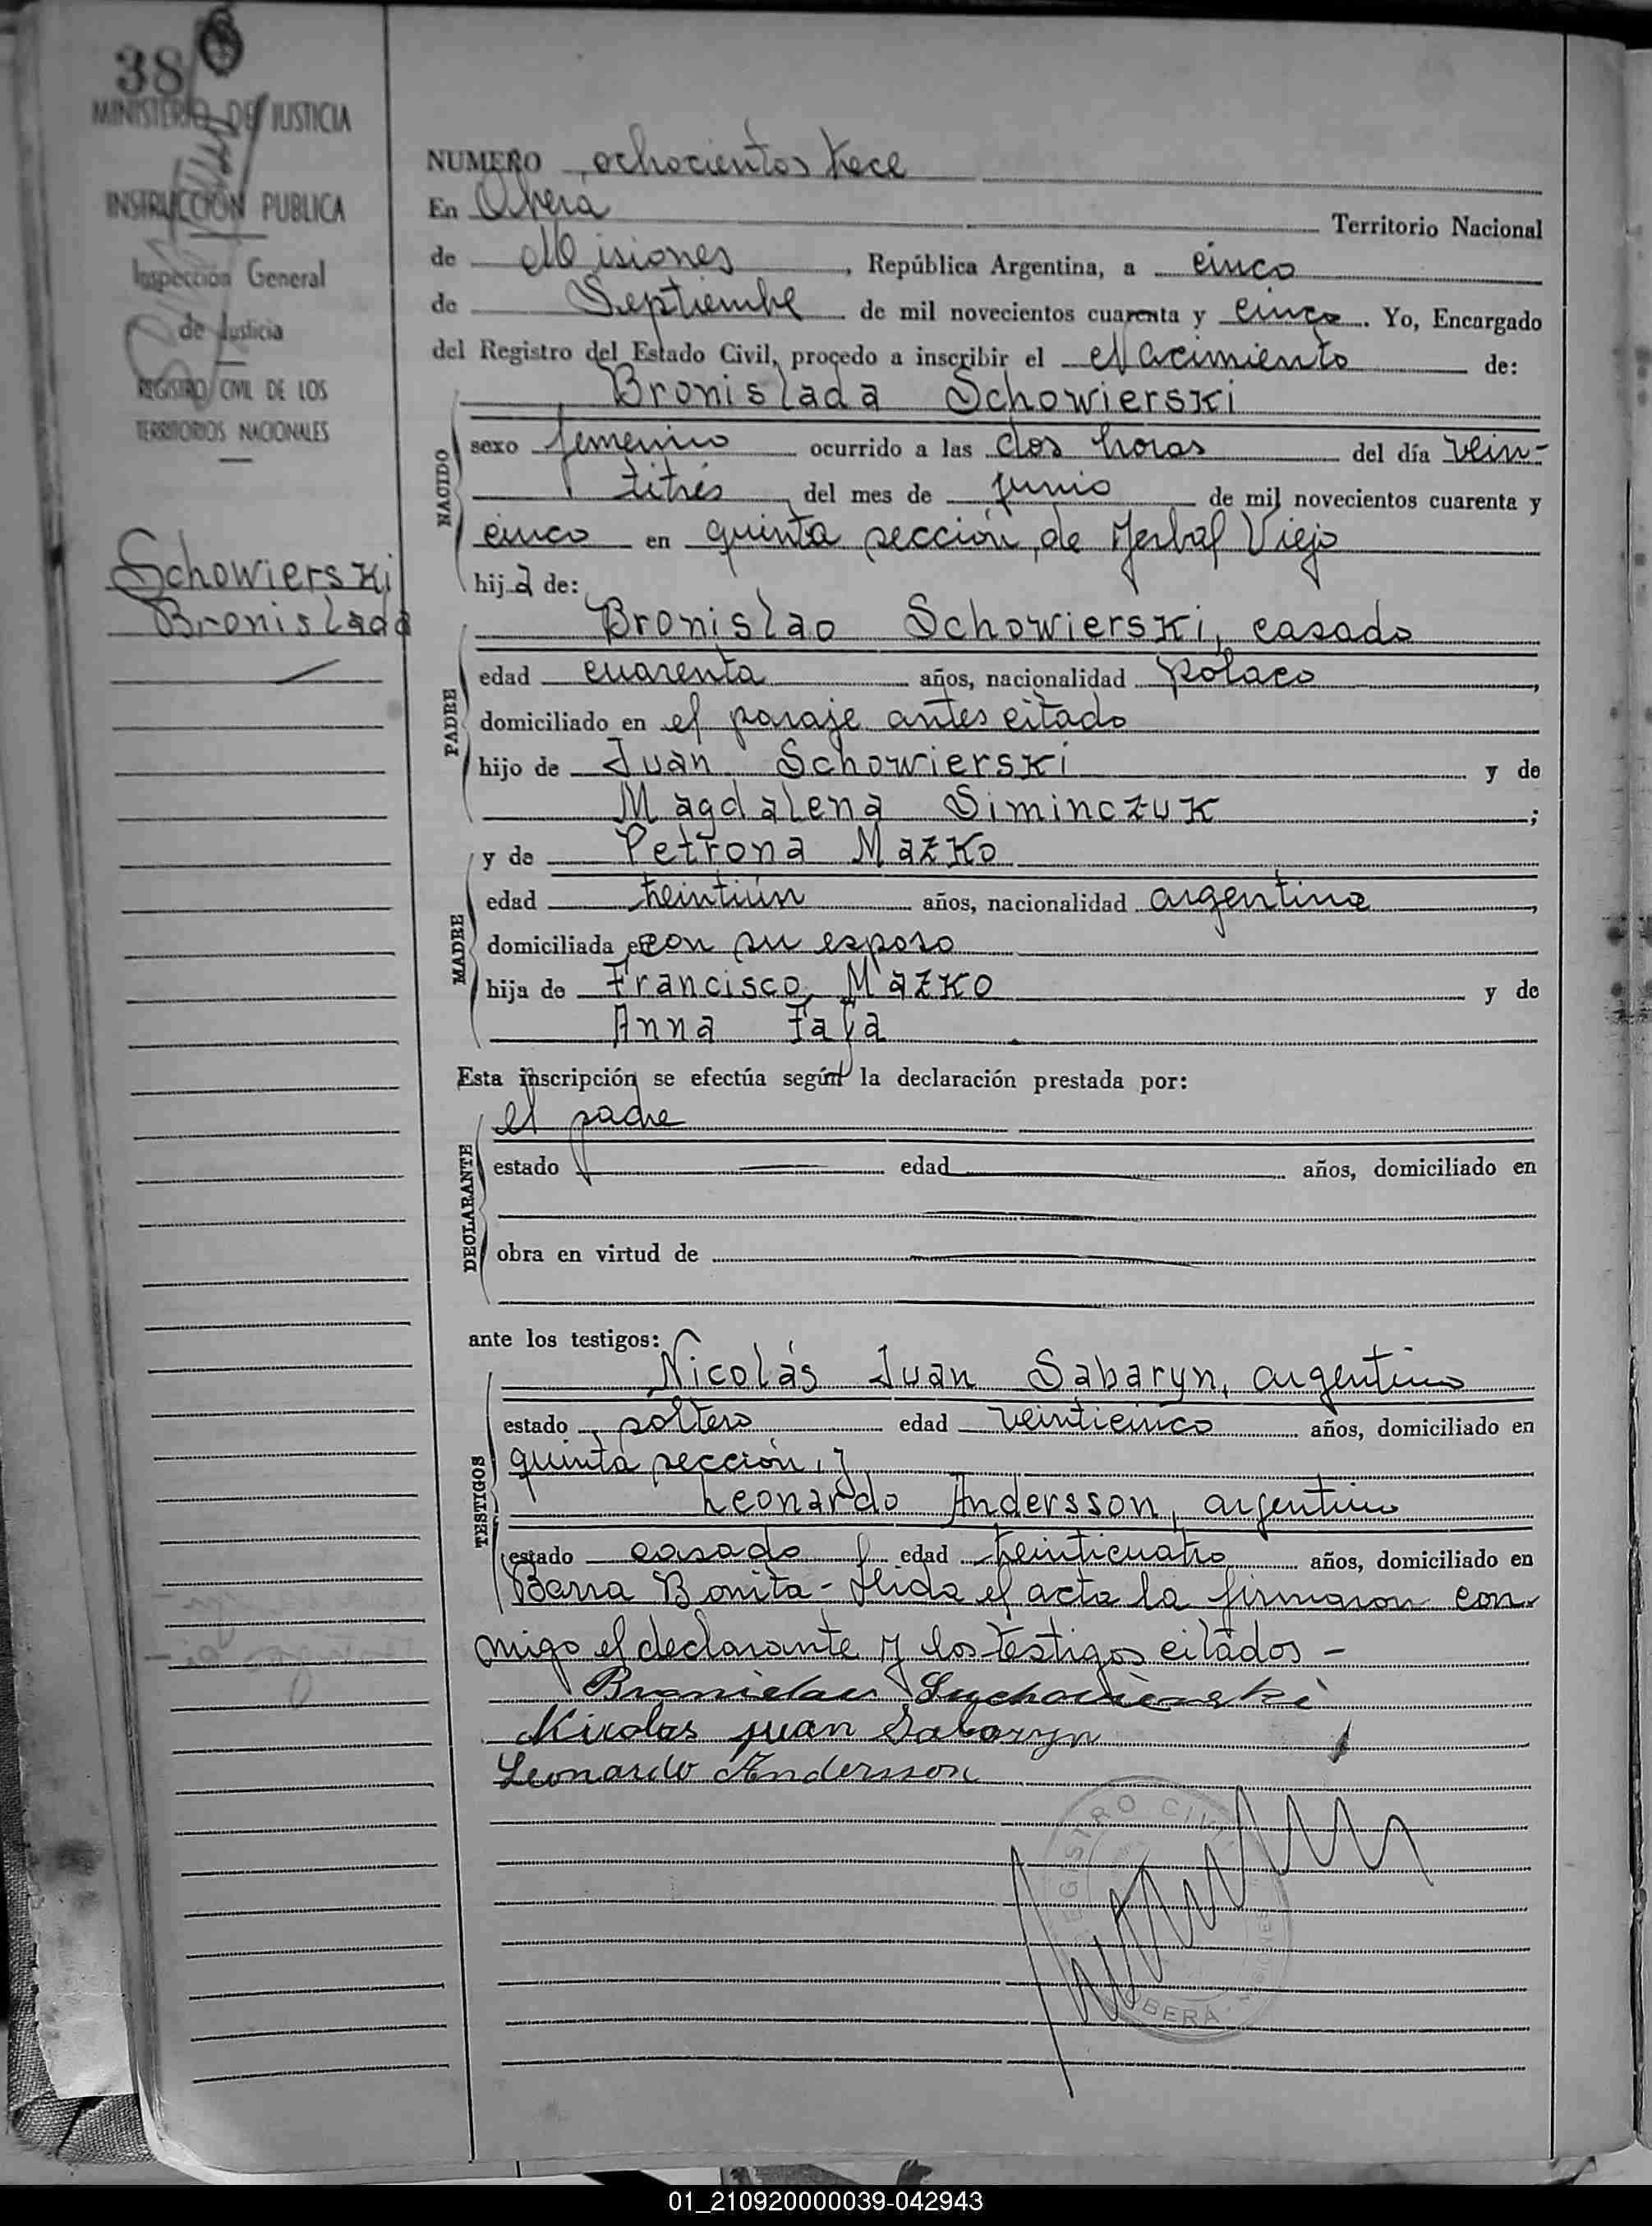 38
MINISTERIO DE JUSTICIA
INSTRUCCION PUBLICA
Inspección General
de Justicia
REGISTRO CIVIL DE LOS
TERRITORIOS NACIONALES
Schowierski
Bronislada
NUMERO ochocientos trece
En Oberá Territorio Nacional
de Misiones, República Argentina, a cinco
de Septiembre de mil novecientos cuarenta y cinco. Yo, Encargado
del Registro del Estado Civil, procedo a inscribir el Nacimiento de:
Bronislada Schowierski
NACIDO
sexo femenino ocurrido a las dos horas del día vein-
titrés del mes de junio de mil novecientos cuarenta y
cinco en quinta sección de Yerbal Viejo
hija de:
Bronislao Schowierski, casado
PADRE
edad cuarenta años, nacionalidad polaco,
domiciliado en el paraje antes citado
hijo de Juan Schowierski y de
Magdalena Siminczuk;
y de Petrona Mazko
MADRE
edad treintiún años, nacionalidad argentina,
domiciliada con su esposo
hija de Francisco Mazko y de
Anna
Esta inscripción se efectúa según la declaración prestada por:
el padre
DECLARANTE
estado edad años, domiciliado en
obra en virtud de
ante los testigos:
Nicolás Juan Sabaryn, argentino
TESTIGOS
estado soltero edad veinticinco años, domiciliado en
quinta sección, y
Leonardo Andersson, argentino
estado casado edad treinticuatro años, domiciliado en
Barra Bonita - Leida el acta la firmaron con-
migo el declarante y los testigos citados -
Bronislao Suchowierski
Nicolas Juan Sabaryn
Leonardo Andersson
REGISTRO CIVIL
OBERÁ
01_210920000039-042943